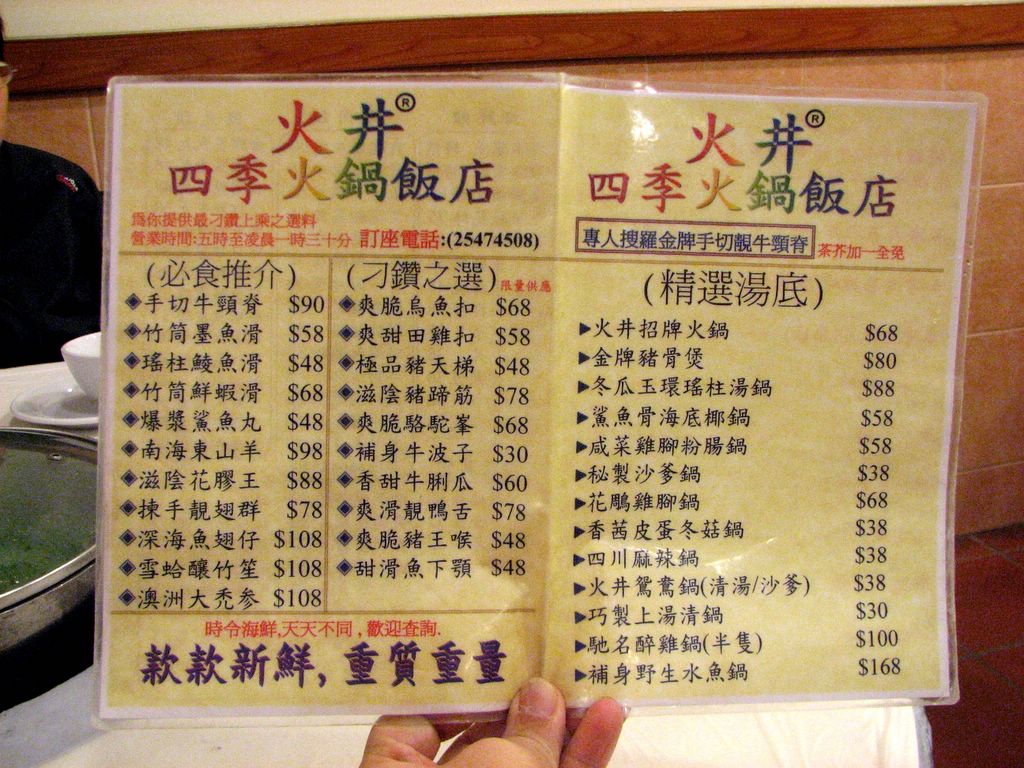 火井®
四季火鍋飯店
為你提供最刁鑽上乘之選料
營業時間:五時至凌晨一時三十分 訂座電話:(25474508)
(必食推介)
◈手切牛頸脊 $90
◈竹筒墨魚滑 $58
◈瑤柱鯪魚滑 $48
◈竹筒鮮蝦滑 $68
◈爆漿鯊魚丸 $48
◈南海東山羊 $98
◈滋陰花膠王 $88
◈揀手靚翅群 $78
◈深海魚翅仔 $108
◈雪蛤釀竹笙 $108
◈澳洲大禿参 $108
(刁鑽之選)限量供應
◈爽脆烏魚扣 $68
◈爽甜田雞扣 $58
◈極品豬天梯 $48
◈滋陰豬蹄筋 $78
◈爽脆駱駝峯 $68
◈補身牛波子 $30
◈香甜牛脷瓜 $60
◈爽滑靚鴨舌 $78
◈爽脆豬王喉 $48
◈甜滑魚下顎 $48
時令海鮮,天天不同,歡迎查詢.
款款新鮮,重質重量
火井®
四季火鍋飯店
專人搜羅金牌手切靚牛頸脊 茶芥加一全免
(精選湯底)
▶火井招牌火鍋 $68
▶金牌豬骨煲 $80
▶冬瓜玉環瑤柱湯鍋 $88
▶鯊魚骨海底椰鍋 $58
▶咸菜雞腳粉腸鍋 $58
▶秘製沙爹鍋 $38
▶花鵰雞腳鍋 $68
▶香茜皮蛋冬菇鍋 $38
▶四川麻辣鍋 $38
▶火井鴛鴦鍋(清湯/沙爹) $38
▶巧製上湯清鍋 $30
▶馳名醉雞鍋(半隻) $100
▶補身野生水魚鍋 $168